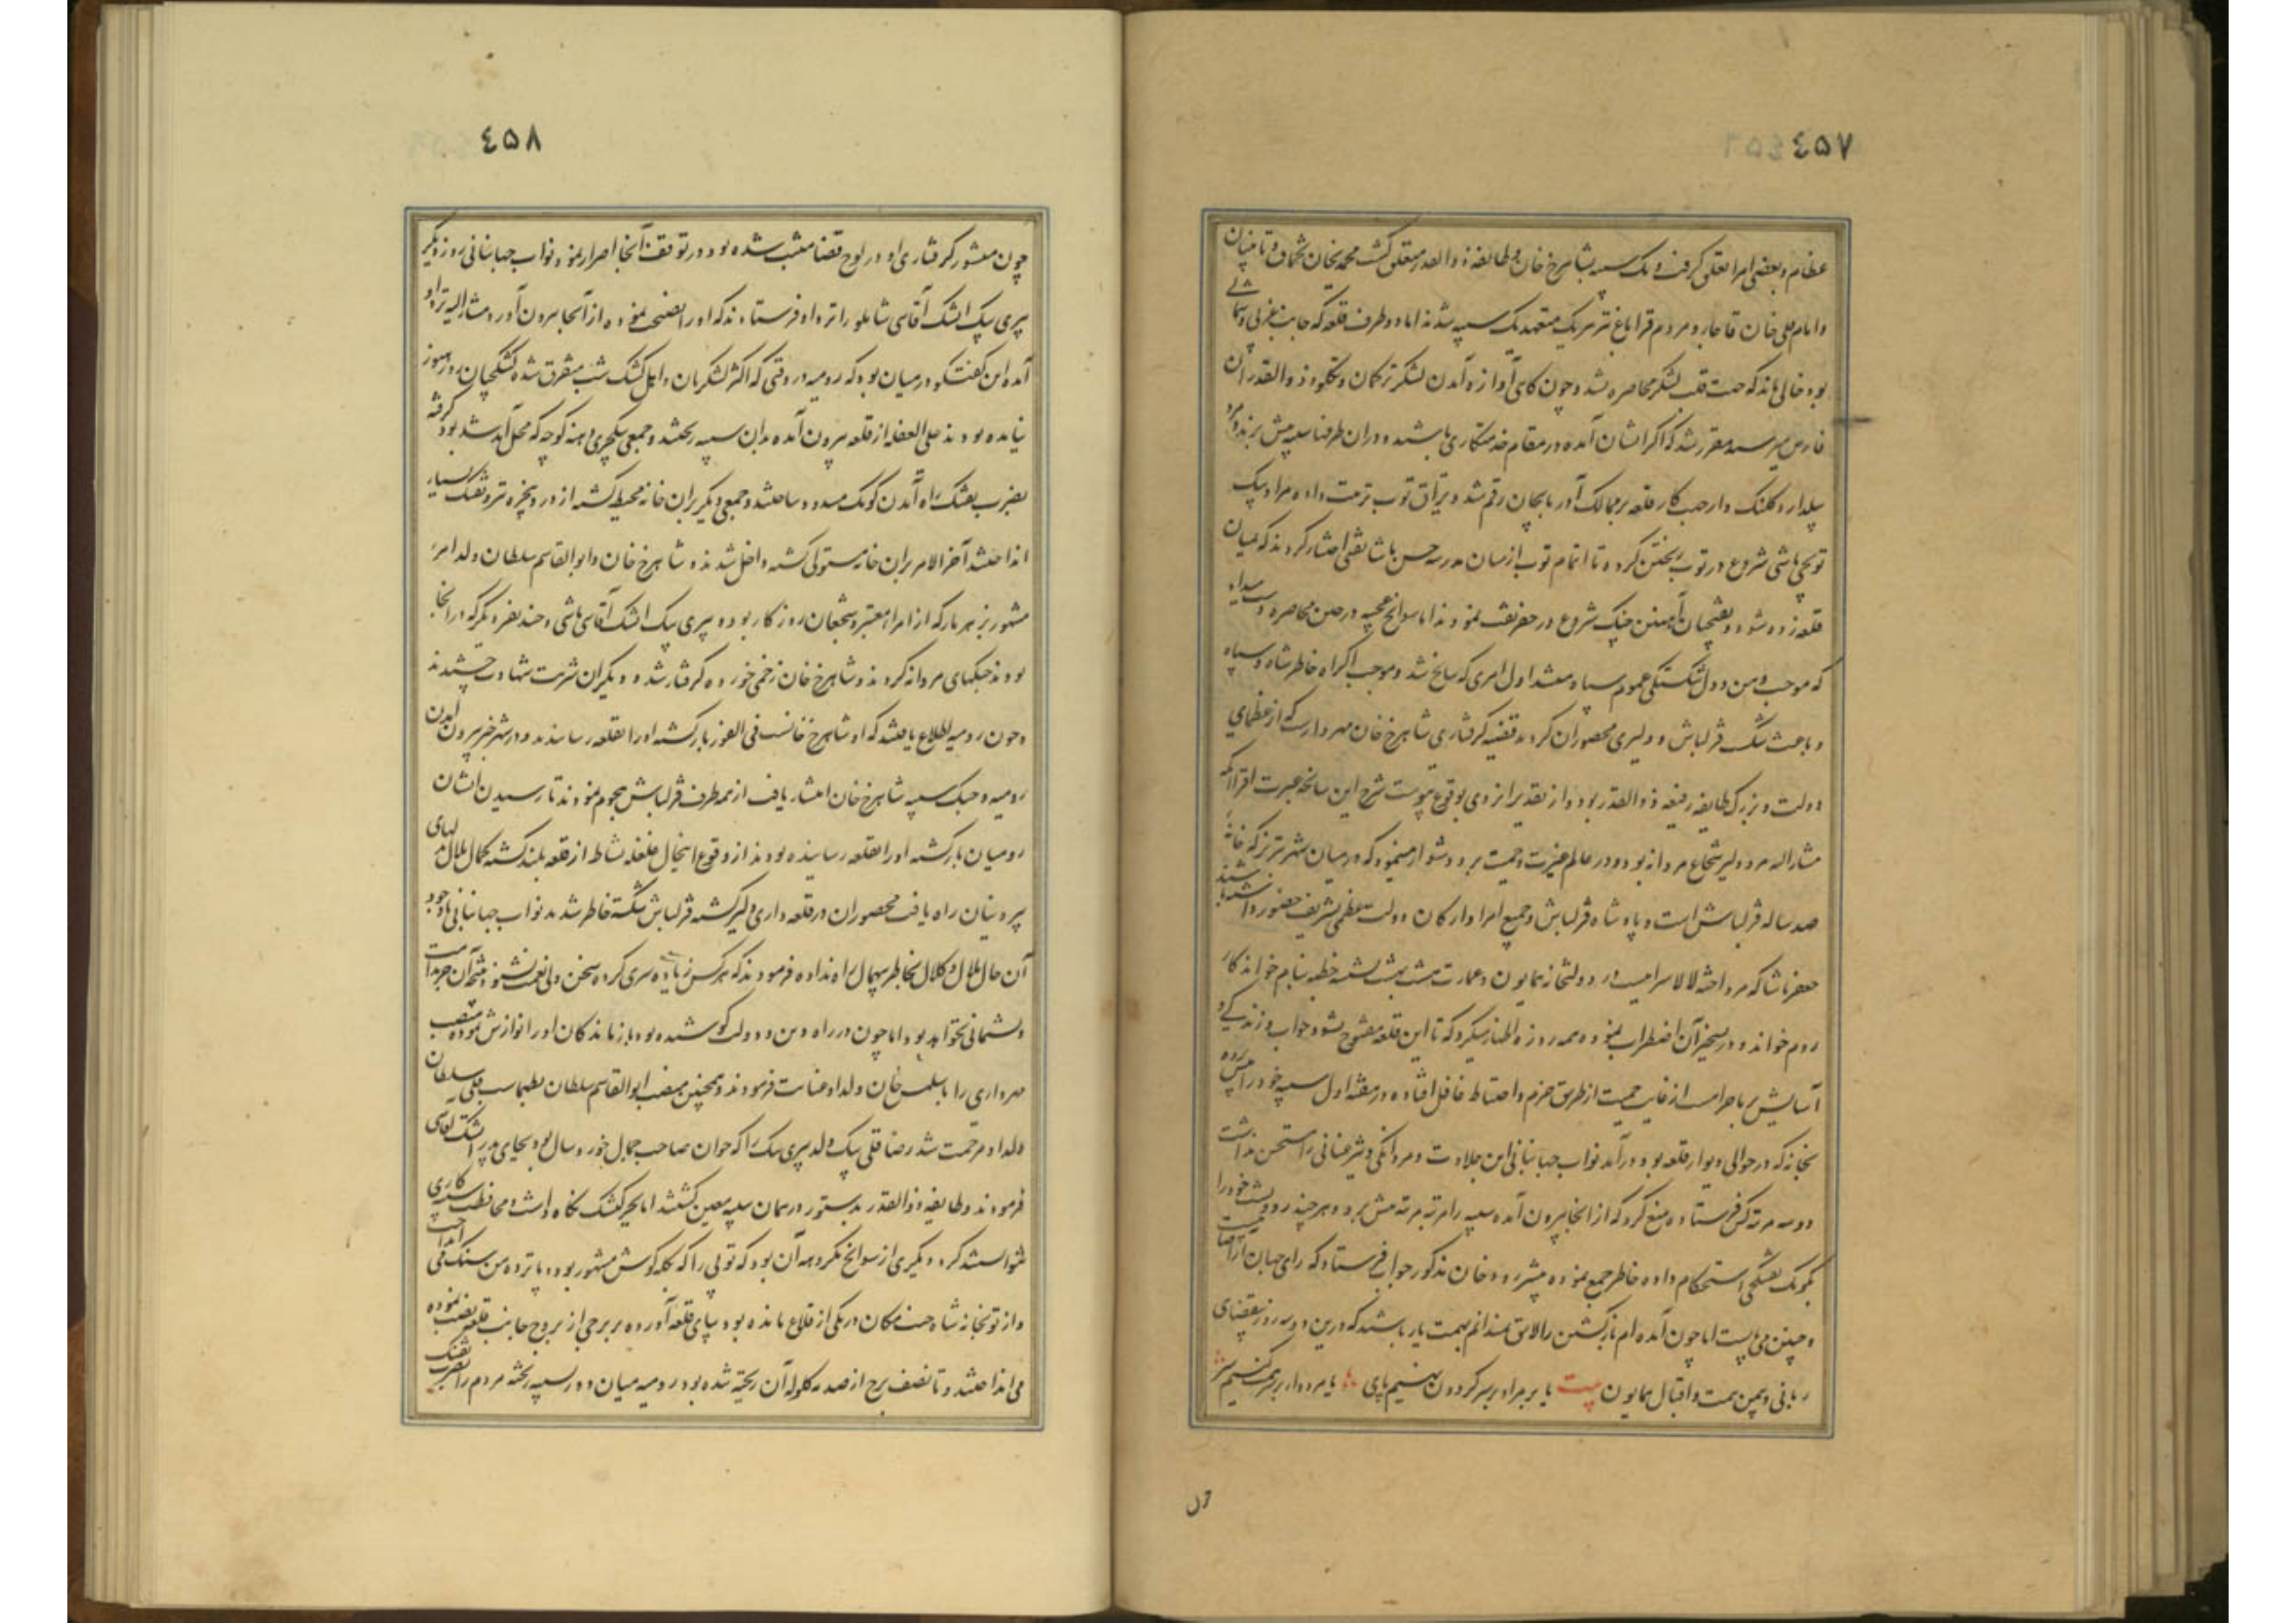 ٤٥٧
عظام و بعضی امرا تعلق گرفت و یک سیبه بشاهرخ خان و طایفه ذوالقدر متعلق گشت محمدیخان تخماق و تابینان
و امام قلی خان قاجار و مردم قراباغ نیز هر یک متعهد یک سیبه شدند اما دو طرف قلعه که جانب غربی و شمالی
بود خالی ماند که جهت قلت لشکر محاصره نشد و چون آوازه آمدن لشکر ترکمان و تکلو و ذوالقدران
فارس میرسید مقرر شد که اگر ایشان آمده در مقام خدمتکاری باشند در آن طرفها سیبه پیش برند و مرد
بیلدار و کلنک دار جهت کار قلعه بر ممالک آذربایجان رقم شد و یراق توپ ترتیب داده مراد بیک
توپچی باشی شروع در توپ ریختن کرد و تا اتمام توپ از میان مدرسه حسن پاشا نقبی اختیار کردند که بمیان
قلعه زده شود و نقبچیان آهنین چنک شروع در حفر نقب نمودند اما سوانح عجیبه در حین محاصره دست داد
که موجب وهن و دل شکستگی عموم سپاه میشد اول امری که سانح شد و موجب اکراه خاطر شاه و سپاه
و باعث شکست قزلباش و دلیری محصوران گردید قضیه گرفتاری شاهرخ خان مهردارست که از عظمای
دولت و بزرگ طایفه رفیعه ذوالقدر بود و از تقدیر ایزدی بوقوع پیوست شرح این سانحه عبرت افزا آنکه
مشار الیه مرد دلیر شجاع مردانه بود و در عالم غیرت و حمیت برو دشوار مینمود که در میان شهر تبریز که خانه
صد ساله قزلباش است و پادشاه قزلباش و جمیع امرا و ارکان دولت عظمی تشریف حضور داشته باشند
جعفر پاشا که مرد اخته لالا سرائیست در دولتخانه همایون و عمارت هشت بهشت نشسته خطبه بنام خواندکار
روم خواند و در تسخیر آن اضطراب نموده همه روزه اظهار میکرد که تا این قلعه مفتوح نشود خواب و زندگی و
آسایش بر ما حرامست از غایت حمیت از طریق حزم و احتیاط غافل افتاده در هفته اول سیبه خود را پیش برده
بخانه که در حوالی دیوار قلعه بود در آمد نواب جهانبانی این جلادت و مردانگی و تیز عنانی را مستحسن نداشت
دو سه مرتبه کس فرستاده منع کرد که از آنجا بیرون آمده سیبه را مرتبه مرتبه پیش برد و هر چند رود پشت خود را
بکومک تفنگچی استحکام داده خاطر جمع نموده پیشتر رود خان مذکور جواب فرستاد که رای جهان آرا صایبست
و چنین می بایست اما چون آمده ام باز گشتن را لایق نمیدانم بهمت یار باشند که درین دو سه روز بمقتضای
ربانی و یمن همت و اقبال همایون بیت یا بر مراد بر سر گردون نهیم پای یا مردوار بر سر همت کنیم سر
٤٥٨
چون منشور گرفتاری او در لوح قضا مثبت شده بود در توقف آنجا اصرار نمود نواب جهانبانی روز دیگر
پیری بیک ایشک آقاسی شاملو را نزد او فرستادند که او را نصیحت نموده از آنجا بیرون آورد مشار الیه نزد او
آمده این گفتگو در میان بود که رومیه در وقتی که اکثر لشکریان و اهل کشک شب متفرق شده کشکچیان روز هنوز
نیامده بودند علی الغفله از قلعه بیرون آمده بدان سیبه ریختند و جمعی ینکچری دهنه کوچه که محل آمد شد بود گرفته
بضرب تفنگ راه آمدن کومک مسدود ساختند و جمعی دیگر بران خانه محیط گشته از در و پنجره تیر و تفنگ بسیار
انداختند آخر الامر بران خانه مستولی گشته داخل شدند و شاهرخ خان و ابوالقاسم سلطان ولد امیر
مشهور بزهر مار که از امراء معتبر و شجعان روزگار بود و پیری بیک ایشک آقاسی باشی و چند نفر دیگر که در آنجا
بودند جنگهای مردانه کردند و شاهرخ خان زخمی خورده گرفتار شد و دیگران شربت شهادت چشیدند
و چون رومیه اطلاع یافتند که او شاهرخ خانست فی الفور باز گشته او را بقلعه رسانیدند و در شهر خبر بیرون آمدن
رومیه و جنگ سیبه شاهرخ خان انتشار یافت از همه طرف قزلباش هجوم نمودند تا رسیدن ایشان
رومیان باز گشته او را بقلعه رسانیده بودند از وقوع اینحال غلغله نشاط از قلعه بلند گشته کمال ملال بدلهای
بیرونیان راه یافت محصوران در قلعه داری دلیر گشته قزلباش شکسته خاطر شدند نواب جهانبانی با وجود
آن حال ملال و کلال بخاطر بیهمال راه نداده فرمودند که هر کس زیاده سری کرده سخن ولی نعمت نشنود نتیجه آن جز ندامت
و پشیمانی نخواهد بود اما چون در راه دین و دولت کوشیده بود باز ماندگان او را نوازش نموده منصب
مهرداری را باسلمس خان ولد او عنایت فرمودند و همچنین منصب ابوالقاسم سلطان بطهماسب قلی سلطان
ولد او مرحمت شد رضا قلی بیک ولد پیری بیک را که جوان صاحب جمال خورد سال بود بجای پدر ایشک آقاسی
فرمودند و طایفه ذوالقدر بدستور در همان سیبه معین گشتند اما بجز کشک نگاه داشت و محافظت سیبه کاری
نتوانستند کرد دیگری از سوانح مکروهه آن بود که توپی را که بکله گوش مشهور بود و پانزده من سنگ می انداخت
و از توپخانه شاه جنت مکان در یکی از قلاع مانده بود بپای قلعه آورده بر برجی از بروج جانب قلعه نصب نموده
می انداختند و تا نصف برج از صدمه گلوله آن ریخته شده بود رومیه میان دو سیبه ریخته مردم را بضرب تفنگ